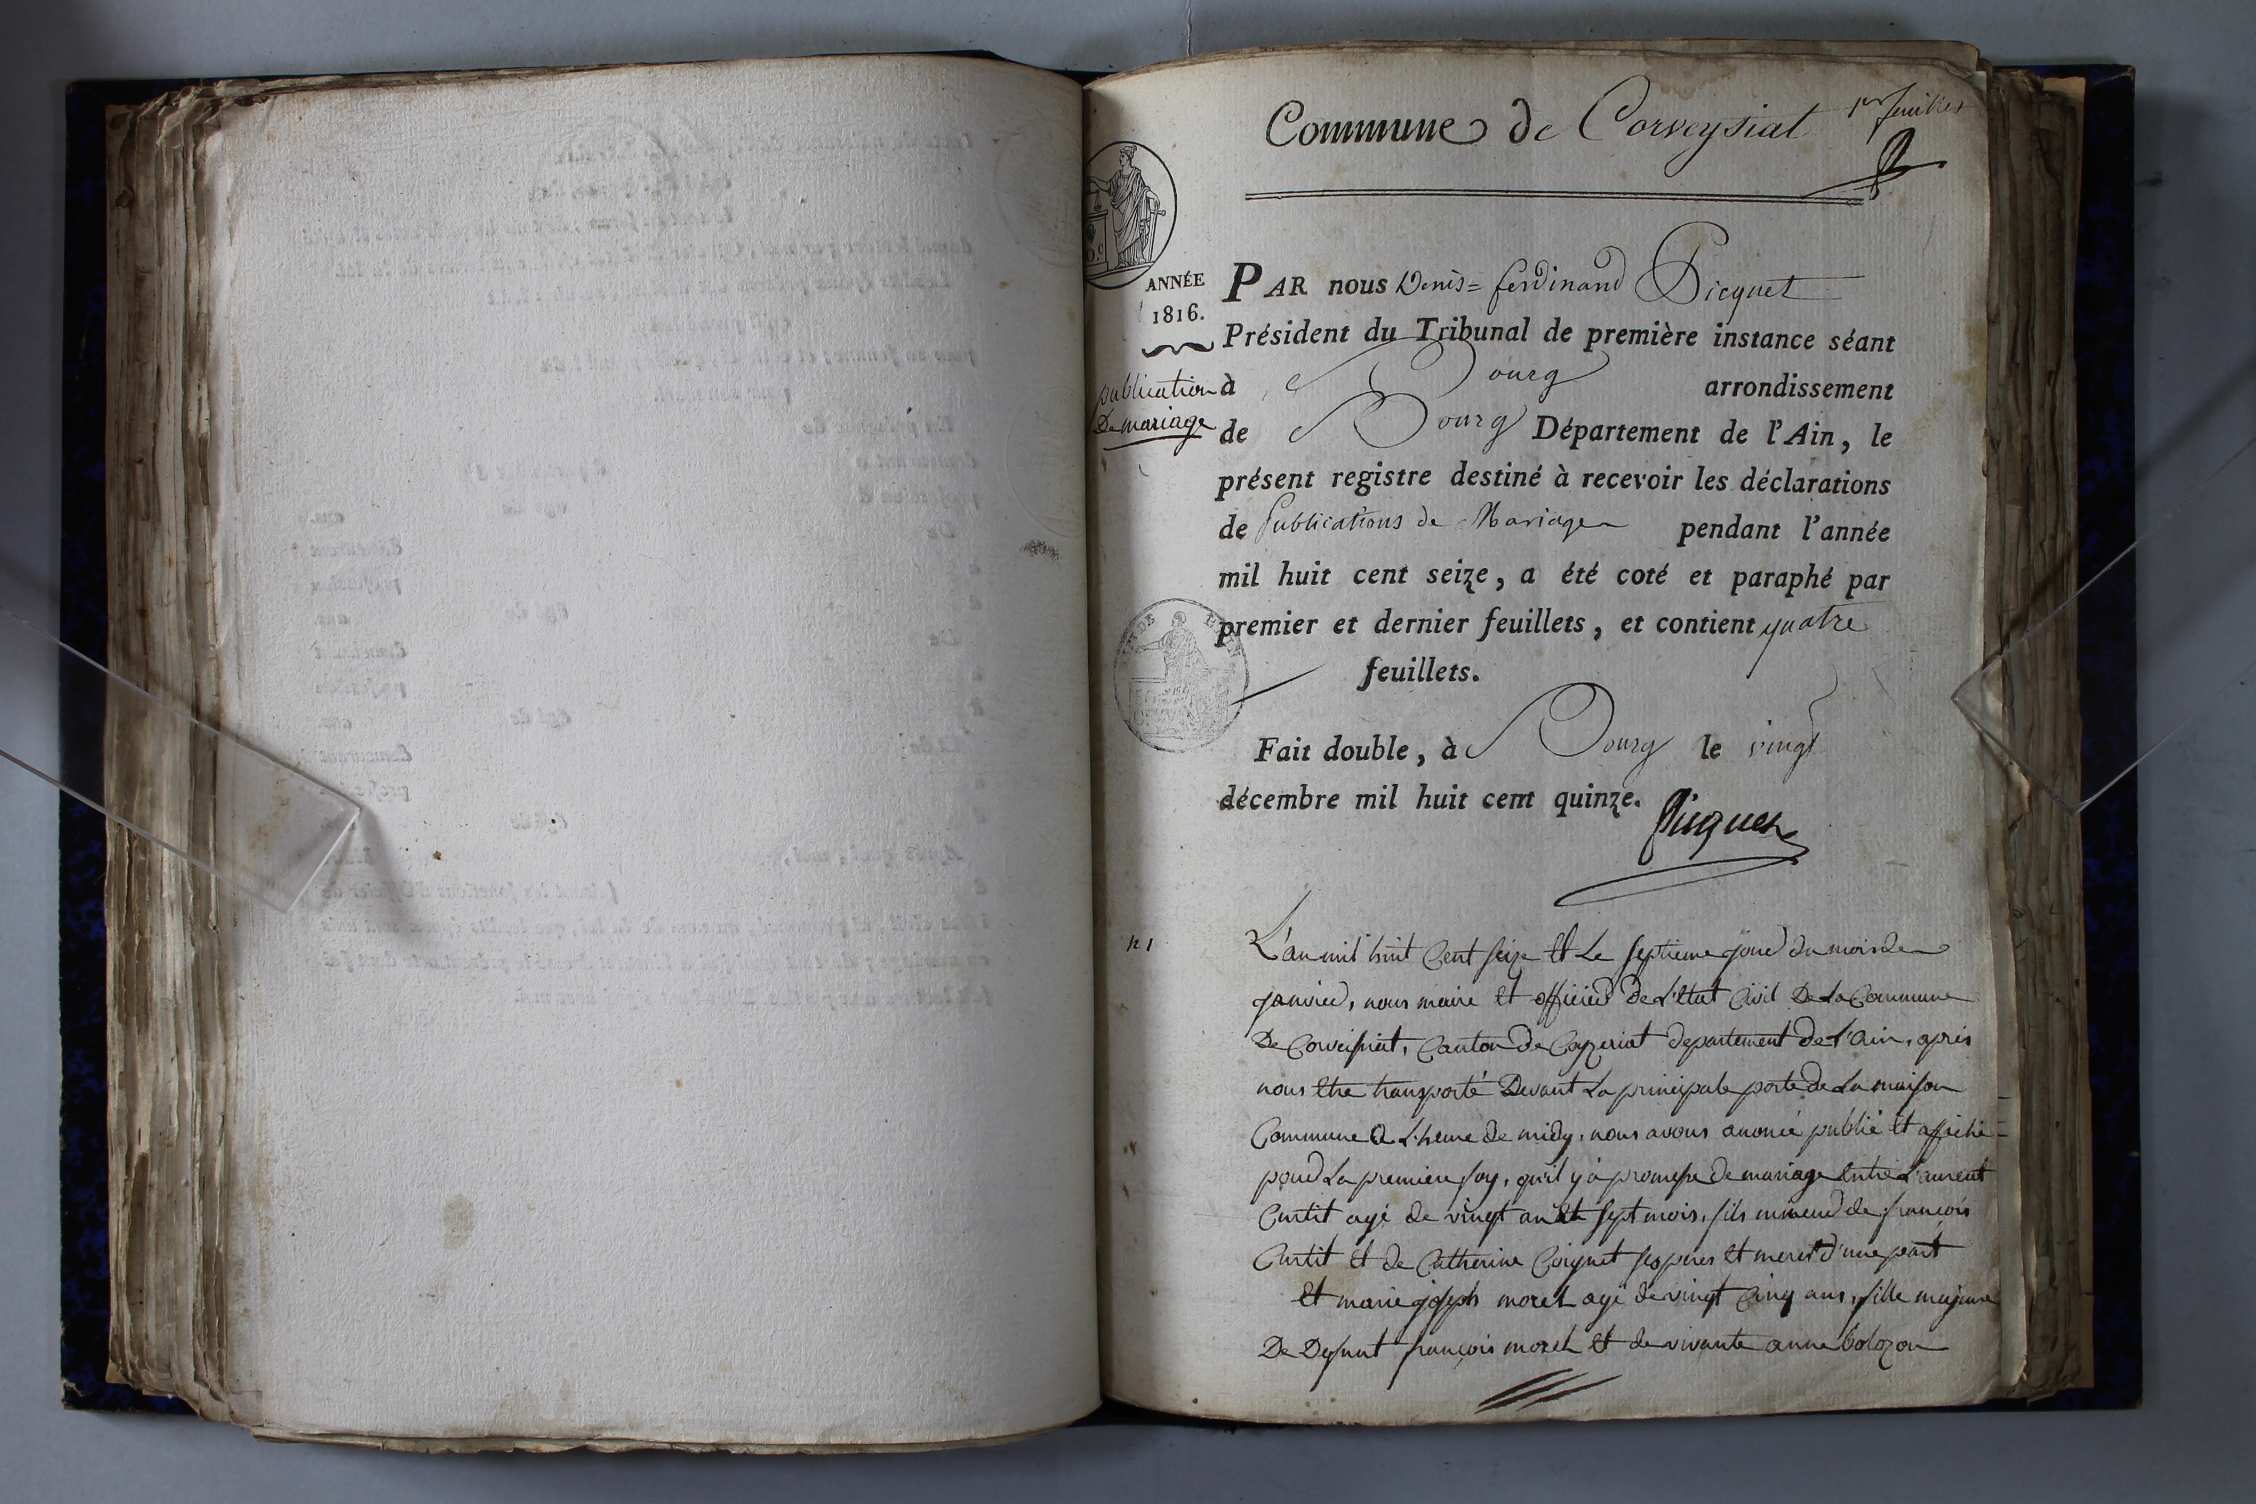 Commune de Corveysiat 1er feuillet
ANNÉE
1816.
publication
De mariage
PAR nous Denis=ferdinand Picquet
Président du Tribunal de première instance séant
à Bourg arrondissement
de Bourg Département de l'Ain, le
présent registre destiné à recevoir les déclarations
de Publications de Mariages pendant l'année
mil huit cent seize, a été coté et paraphé par
premier et dernier feuillets, et contient quatre
feuillets.
Fait double, à Bourg le vingt
décembre mil huit cent quinze.
Picquet
n 1
L'an mil huit Cent seize Et Le septieme jour du mois de
janvier, nous maire Et officier de L'Etat Civil De La Commune
De Corveisiat, Canton de Cayzeriat departement de L'ain, après
nous Etre transporté Devant La principale porte de La maison
Commune a L'heure de midy, nous avons anoncé publié Et affiché
pour La premiere foy, qu'il y à promesse de mariage Entre Laurent
Curtit agé de vingt an Et sept mois, fils mineur de françois
Curtit Et de Catherine Coignet ses peres Et meres d'une part
Et marie joseph morel agé de vingt Cinq ans, fille majeure
De Defunt françois morel Et de vivante anne bolozon